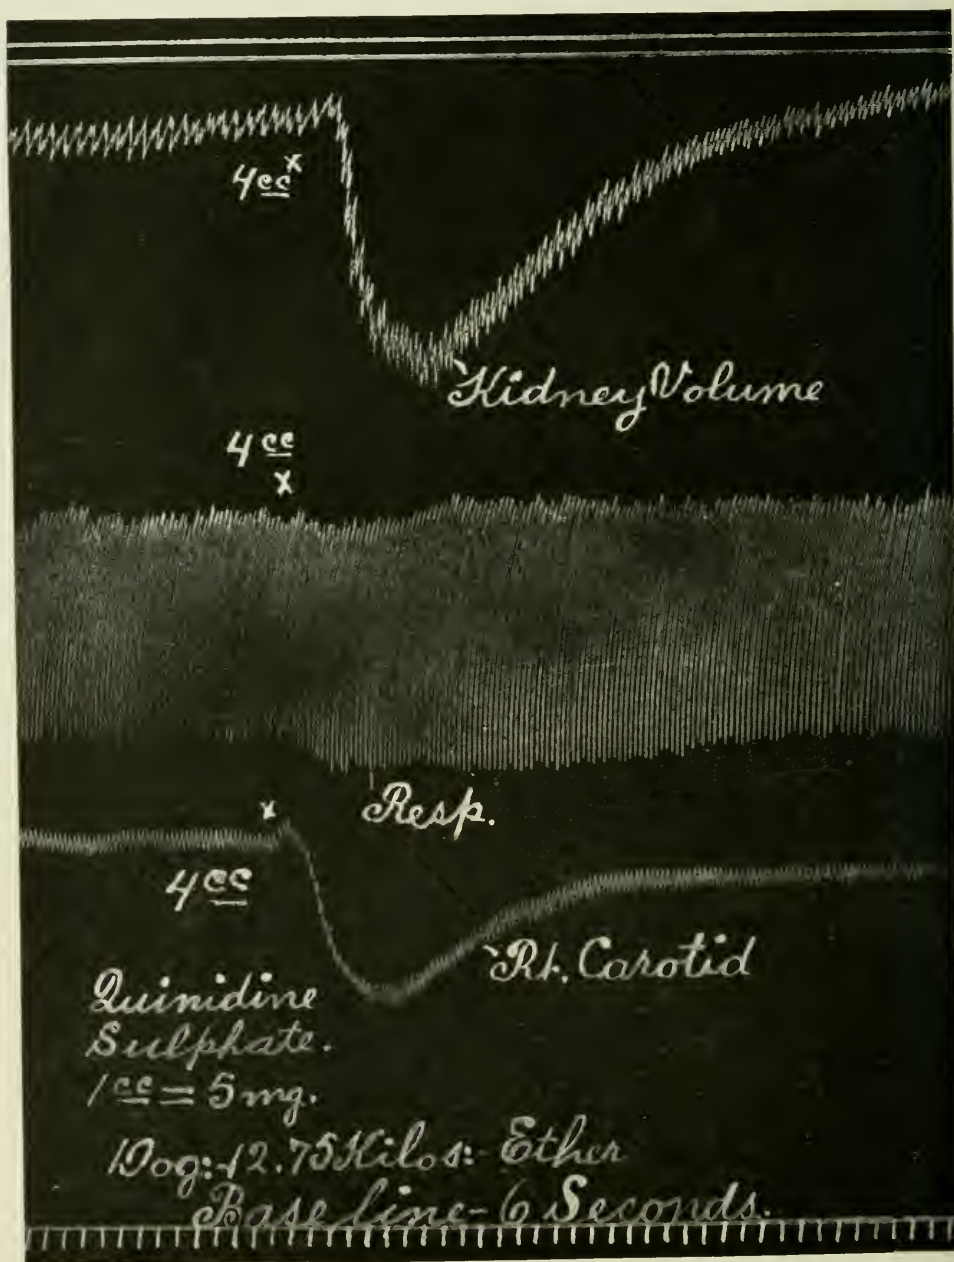 x
4 cc
Kidney Volume
4 cc
x
Resp.
x
4 cc
Rt. Carotid
Quinidine
Sulphate.
1 cc = 5 mg.
Dog:-12.75 Kilos:- Ether
Base line - 6 Seconds.